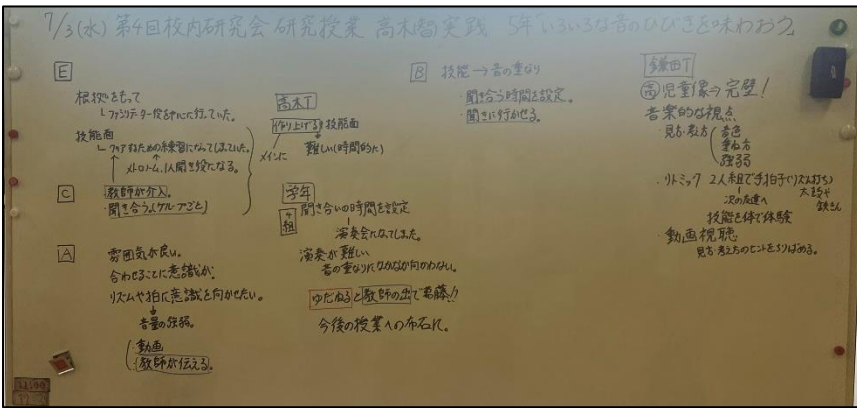 7/3(水) 第4回校内研究会 研究授業 高木智実践 5年「いろいろな音のひびきを味わおう」
E
根拠をもって
└ファシリテーター役を中心に行っていた。
技能面
└クリアするための練習になってしまっていた。
メトロノーム、1人聞き役になる。
C
教師が介入。
・聞き合う。(グループごと)
A
雰囲気が良い。
合わせることに意識が。
リズムや拍に意識を向かせたい。
音量の強弱。
・動画
・教師が伝える。
高木T
作り上げる 技能面
メインに
難しい(時間的に)
学年
聞き合いの時間を設定
演奏会になってしまった。
演奏が難しい
音の重なりになかなか向かわない。
ゆだねると教師の出で葛藤!!
今後の授業への布石に。
B 技能→音の重なり
・聞き合う時間を設定。
・聞きに行かせる。
鎌田T
高 児童像→完璧!
音楽的な視点
・見方・考え方
音色
重ね方
強弱
・リトミック 2人組で手拍子(リズム打ち)
次の友達へ
技能を体で体験
・動画視聴
見方・考え方のヒントをちりばめる。